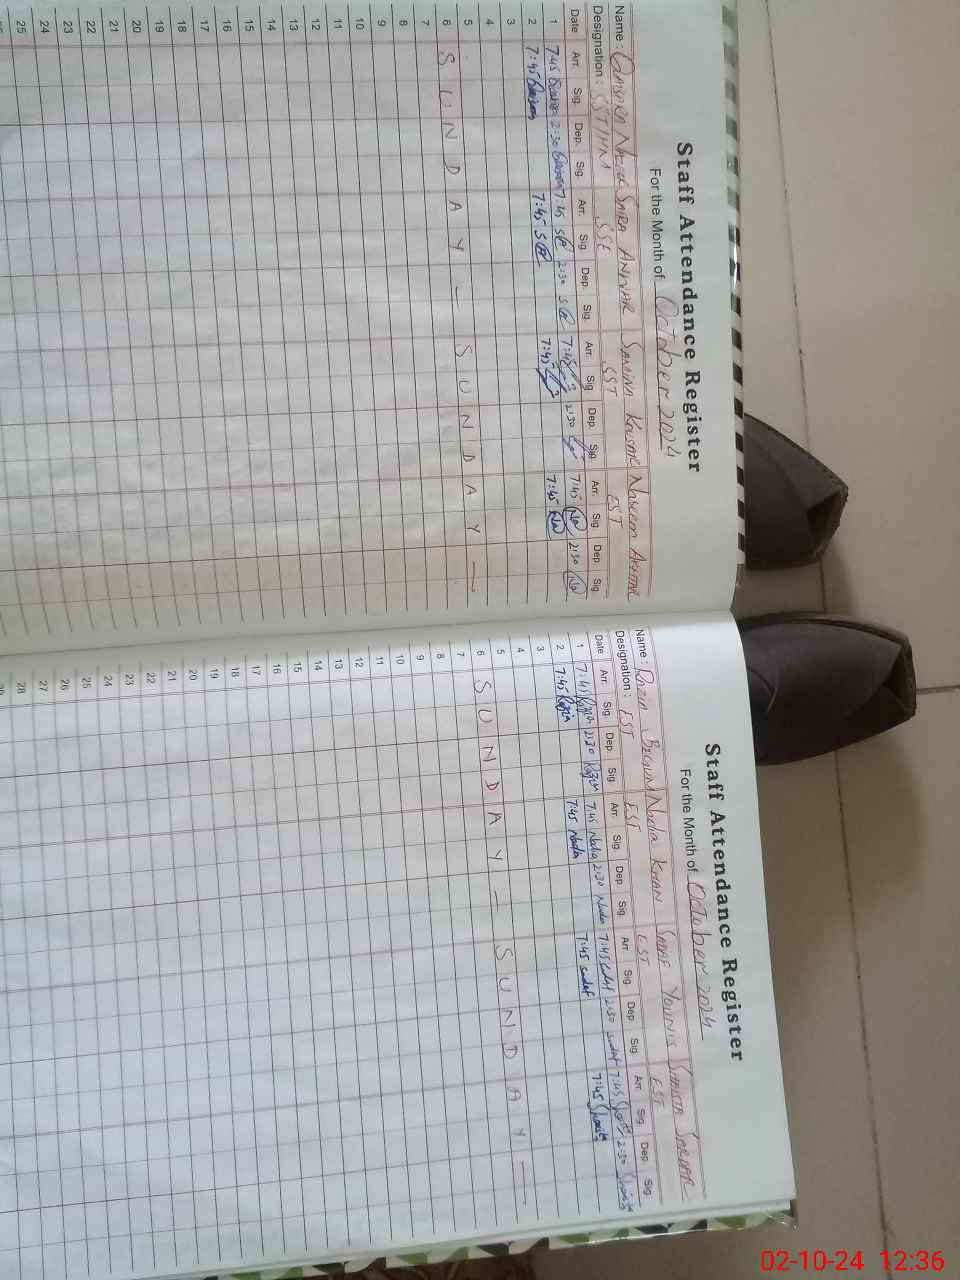 Staff Attendance Register
For the Month of October 2024
Name : QAISARA NAZIR SAIRA ANWAR SAMINA KAUSAR NASEEM AKHTAR
Designation : SST SSE SST EST
Date Arr. Sig. Dep. Sig. Arr. Sig. Dep. Sig. Arr. Sig. Dep. Sig. Arr. Sig. Dep. Sig.
1 7:45 2:30 7:45 2:30 7:45 2:30 7:45 Na 2:30 Na
2 7:45 7:45 7:45 7:45 Na
3
4
5
6 S U N D A Y — S U N D A Y —
7
8
9
10
11
12
13
14
15
16
17
18
19
20
21
22
23
24
25
Staff Attendance Register
For the Month of October 2024
Name : RAZIA BEGUM Nadia KHAN SADAF YOUNIS SHAISTA SARDAR
Designation : EST EST EST EST
Date Arr. Sig. Dep. Sig. Arr. Sig. Dep. Sig. Arr. Sig. Dep. Sig. Arr. Sig. Dep. Sig.
1 7:45 Razia 2:30 Razia 7:45 Nadia 2:30 Nadia 7:45 Sadaf 2:30 Sadaf 7:45 2:30
2 7:45 Razia 7:45 Nadia 7:45 Sadaf 7:45
3
4
5
6 S U N D A Y — S U N D A Y —
7
8
9
10
11
12
13
14
15
16
17
18
19
20
21
22
23
24
25
26
27
28
02-10-24 12:36